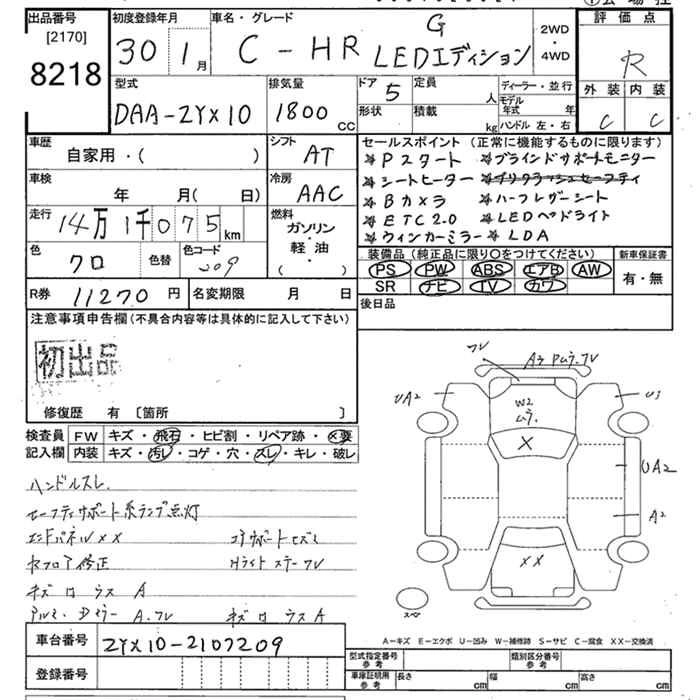 出品番号
[2170]
8218
初度登録年月
30 1月
車名・グレード
C-HR G LEDエディション
2WD
・
4WD
評価点
R
外装 内装
C C
型式
DAA-ZYX10
排気量
1800 CC
ドア 5
形状
定員 人
積載 kg
ディーラー・並行
モデル年式 年
ハンドル 左・右
車歴
自家用・( )
シフト
AT
車検
年 月( 日)
冷房
AAC
走行
14万1千075km
燃料
ガソリン
・
軽・油
( )
色
クロ
色替
色コード
209
R券 11270円
名変期限 月 日
セールスポイント (正常に機能するものに限ります)
Pスタート
ブラインドサポートモニター
シートヒーター
プリクラッシュセーフティ
Bカメラ
ハーフレザーシート
ETC2.0
LEDヘッドライト
ウィンカーミラー
LDA
装備品 (純正品に限り○をつけてください)
PS PW ABS エアB AW
SR ナビ TV カワ
新車保証書
有・無
後日品
注意事項申告欄(不具合内容等は具体的に記入して下さい)
初出品
修復歴 有 〔箇所 〕
検査員 FW キズ・飛石・ヒビ割・リペア跡・×要
記入欄 内装 キズ・汚レ・コゲ・穴・スレ・キレ・破レ
ハンドルスレ
セーフティサポート系ランプ点灯
エンドパネル××
コアサポートヒズミ
リヤフロア修正
Hライトステーフレ
キズロウスA
アルミ・Dミラー A.フレ
キズロウスA
フレ
A3 Pムラ.フレ
UA2
U3
W2
ムラ.
×
UA2
A2
××
スペア
車台番号 ZYX10-2107209
登録番号
A-キズ E-エクボ U-凹み W-補修跡 S-サビ C-腐食 XX-交換済
型式指定番号
参考
類別区分番号
参考
車庫証明用
参考
長さ cm
幅 cm
高さ cm